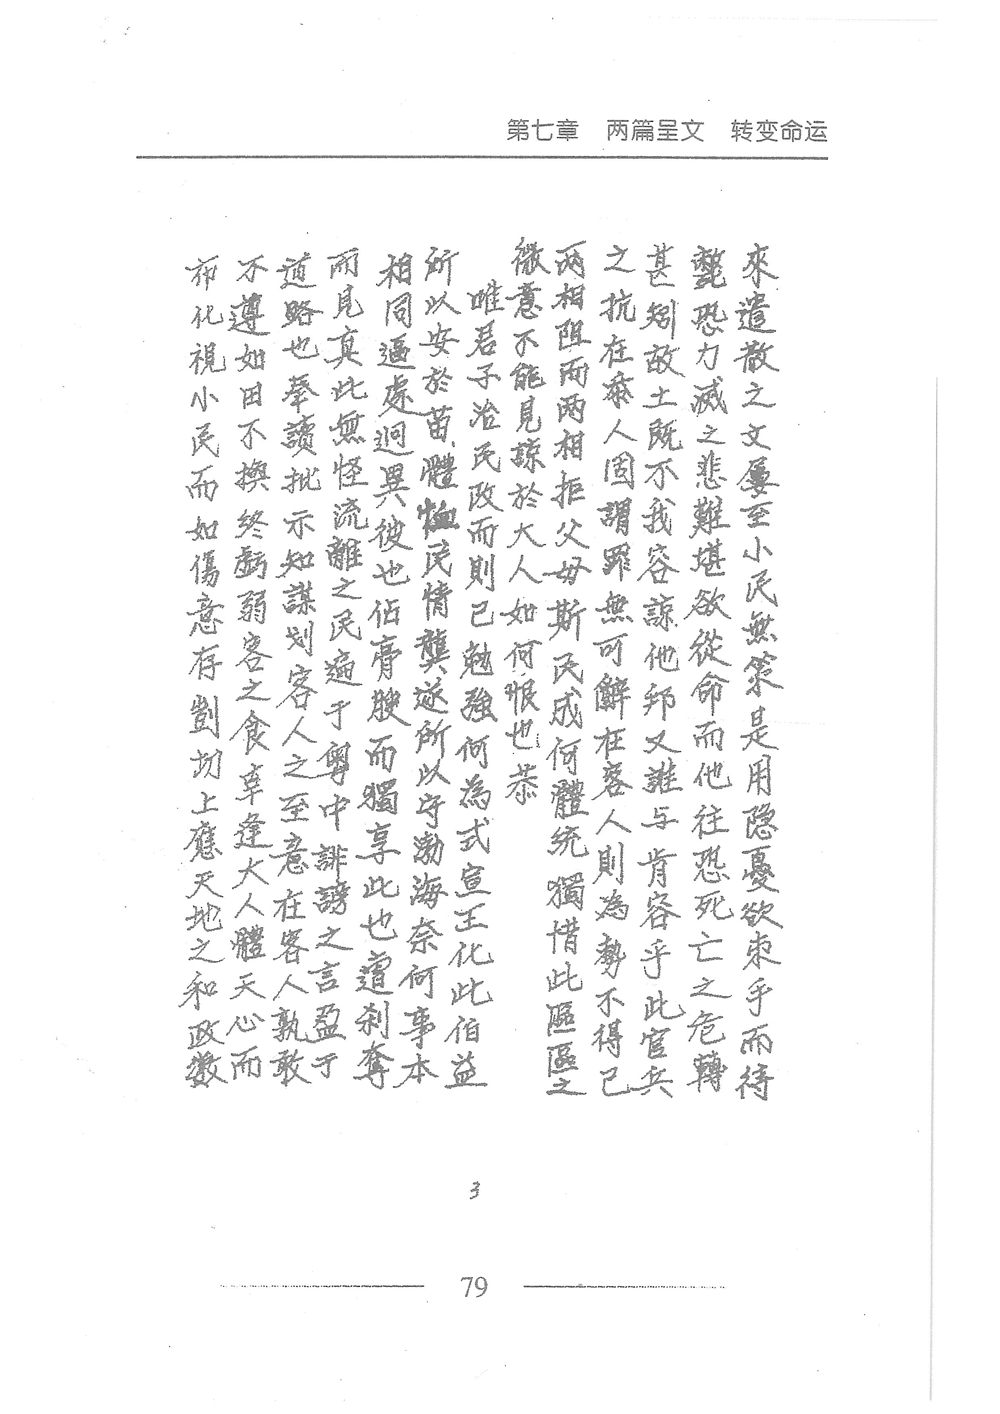 第七章　两篇呈文　转变命运
來遣散之文屢至小民無策是用隐憂欲束手而待
斃恐力滅之悲難堪欲從命而他往恐死亡之危轉
甚矧故土既不我容諒他邦又誰与肯容乎此官兵
之抗在寮人固謂罪無可辭在客人則為勢不得已
两相阻而两相拒父母斯民成何體統獨惜此區區之
微意不能見諒於大人如何恨也恭
唯君子治民政而則已勉強何為式宣王化此伯益
所以安於苗體恤民情龔遂所以守渤海奈何事本
相同逼處迥異彼也佔膏腴而獨享此也遭刹奪
而見真此無怪流離之民遍于粵中誹謗之言盈于
道路也奉讀批示知謀划客人之至意在客人孰敢
不遵如田不換終虧弱客之食幸逢大人體天心而
布化視小民而如傷意存剴切上應天地之和政数
3
79